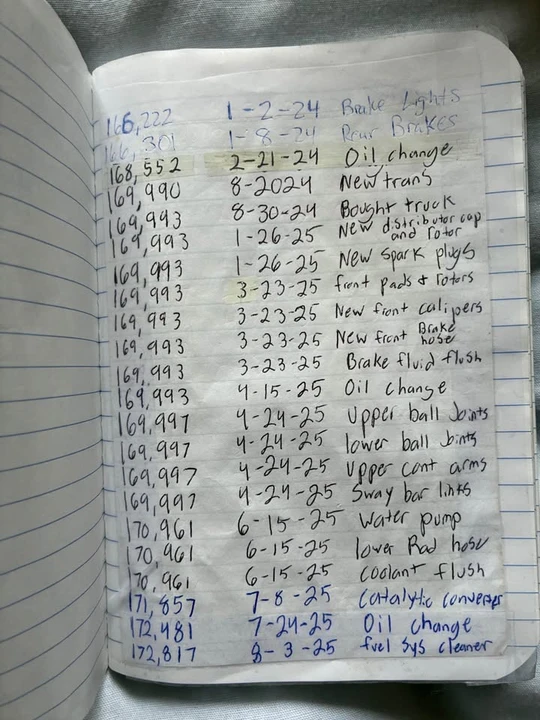 166,222 1-2-24 Brake Lights
166,301 1-8-24 Rear Brakes
168,552 2-21-24 Oil change
169,990 8-2024 New trans
169,993 8-30-24 Bought truck
169,993 1-26-25 New distributor cap and rotor
169,993 1-26-25 New spark plugs
169,993 3-23-25 front pads & rotors
169,993 3-23-25 New front calipers
169,993 3-23-25 New front Brake hose
169,993 3-23-25 Brake fluid flush
169,993 4-15-25 Oil change
169,997 4-24-25 Upper ball Joints
169,997 4-24-25 lower ball Joints
169,997 4-24-25 Upper cont arms
169,997 4-24-25 Sway bar links
170,961 6-15-25 Water pump
170,961 6-15-25 lower Rad hose
170,961 6-15-25 coolant flush
171,857 7-8-25 Catalytic converter
172,481 7-24-25 Oil change
172,817 8-3-25 fuel sys cleaner